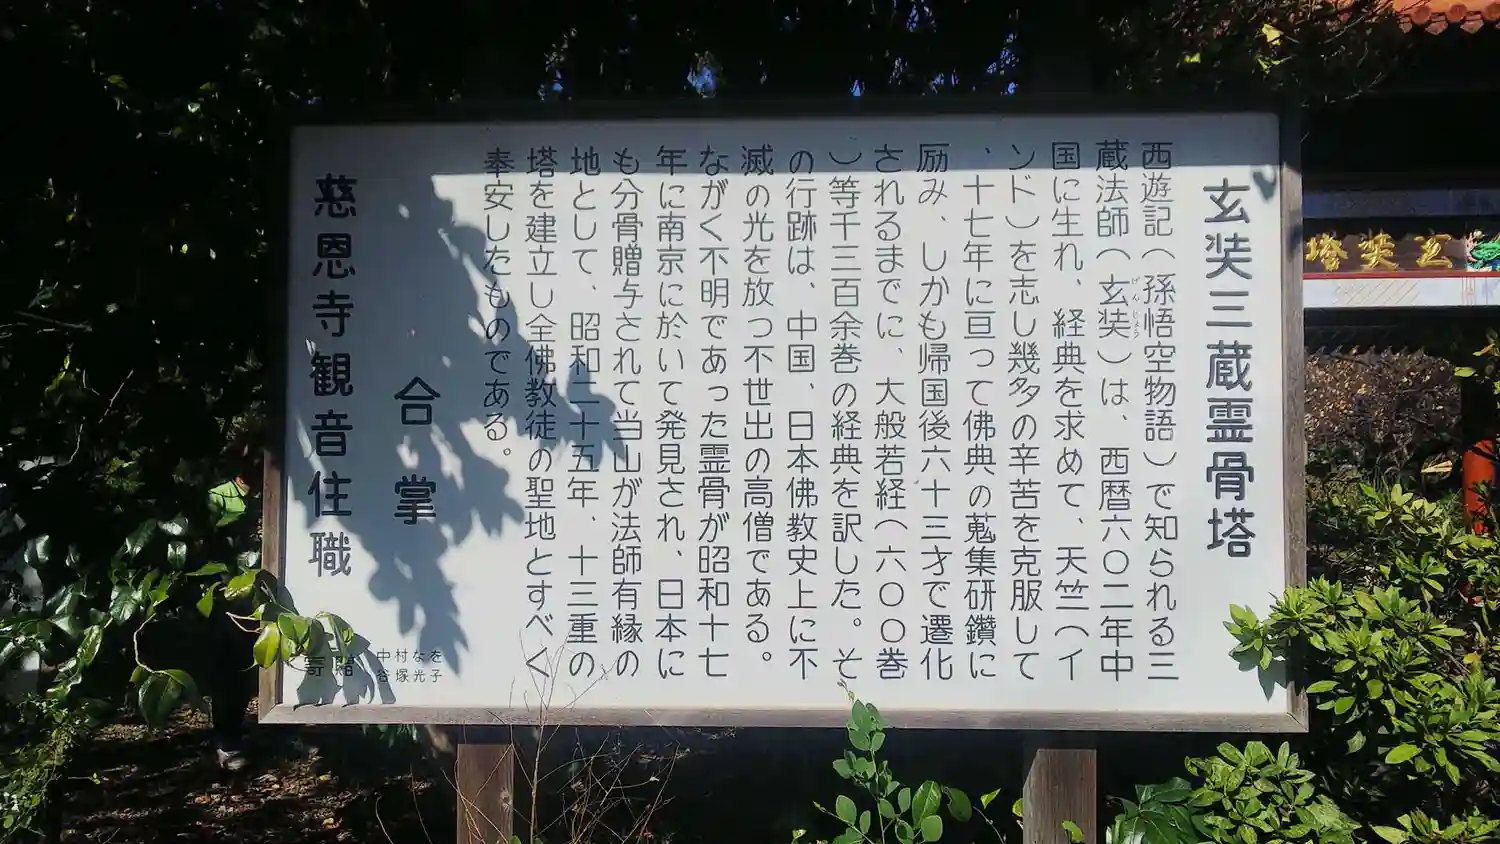 玄奘三蔵霊骨塔
西遊記(孫悟空物語)で知られる三
蔵法師(玄奘)は、西暦六〇二年中
げんじょう
国に生れ、経典を求めて、天竺(イ
ンド)を志し幾多の辛苦を克服して
、十七年に亘って佛典の蒐集研鑽に
励み、しかも帰国後六十三才で遷化
されるまでに、大般若経(六〇〇巻
)等千三百余巻の経典を訳した。そ
の行跡は、中国、日本佛教史上に不
滅の光を放つ不世出の高僧である。
ながく不明であった霊骨が昭和十七
年に南京に於いて発見され、日本に
も分骨贈与されて当山が法師有縁の
地として、昭和二十五年、十三重の
塔を建立し全佛教徒の聖地とすべく
奉安したものである。
合掌
慈恩寺観音住職
寄贈 中村なを
谷塚光子
玄奘塔